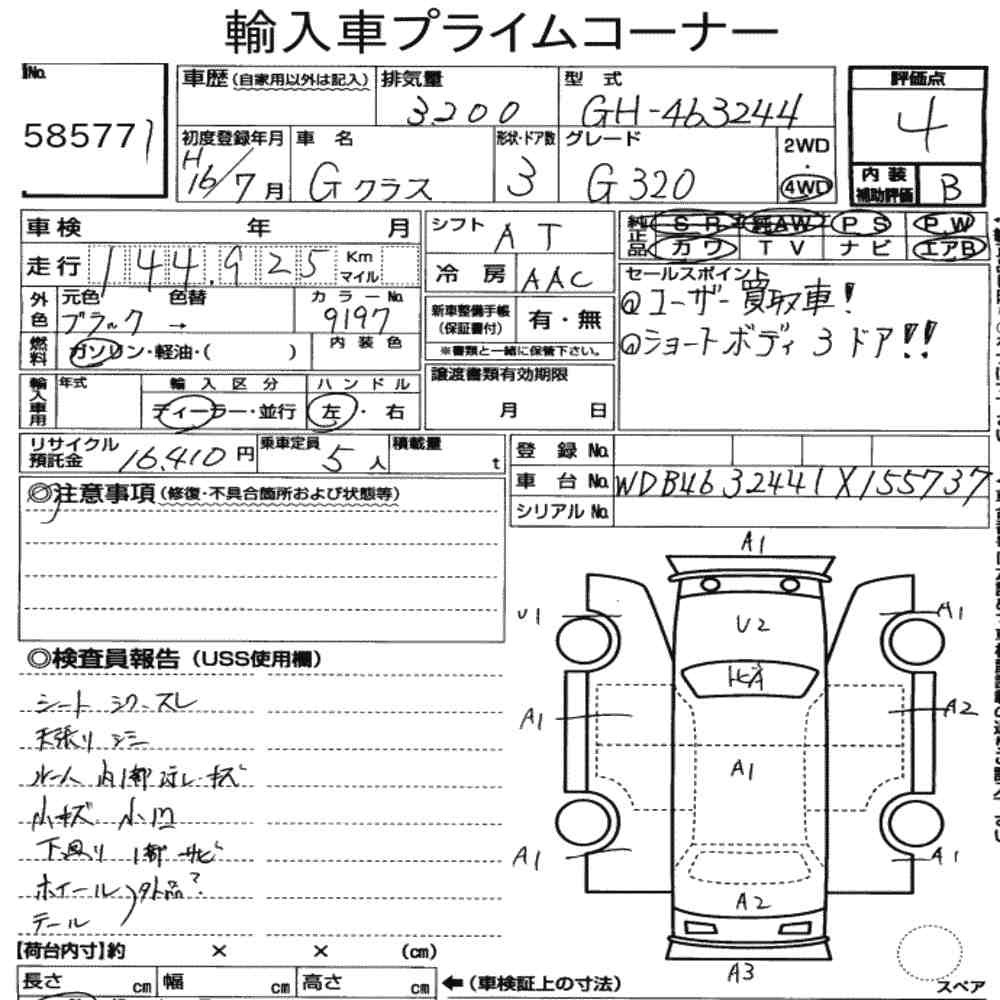 輸入車プライムコーナー
No.
58577
車歴(自家用以外は記入)
排気量
3200
型 式
GH-463244
評価点
4
初度登録年月
H16/7月
車 名
Gクラス
形状・ドア数
3
グレード
G320
2WD
・
4WD
内装
補助評価
B
車検 年 月
走行 144,925 Km
マイル
シフト AT
冷房 AAC
純正品 SR 純AW PS P.W
カワ TV ナビ エアB
セールスポイント
@ユーザー買取車!
@ショートボディ 3ドア!!
外色 元色 色替
ブラック →
カラーNo.
9197
燃料 ガソリン・軽油・( )
内装色
新車整備手帳
(保証書付)
有・無
※書類と一緒に保管下さい。
輸入車用 年式
輸入区分
ディーラー・並行
ハンドル
左・右
譲渡書類有効期限
月 日
リサイクル
預託金 16,410円
乗車定員
5人
積載量
t
登録No.
車台No. WDB4632441X155737
シリアルNo.
◎注意事項(修復・不具合箇所および状態等)
◎検査員報告(USS使用欄)
シート シワ・スレ
天張り シミ
ルーム 内1部ヨゴレ・キズ
小キズ 小凹
下廻り 1部サビ
ホイール
テール
外品?
A1
U1
A1
U2
A1
A2
A1
A1
A1
A2
A3
スペア
【荷台内寸】約 × × (cm)
長さ cm 幅 cm 高さ cm
←(車検証上の寸法)